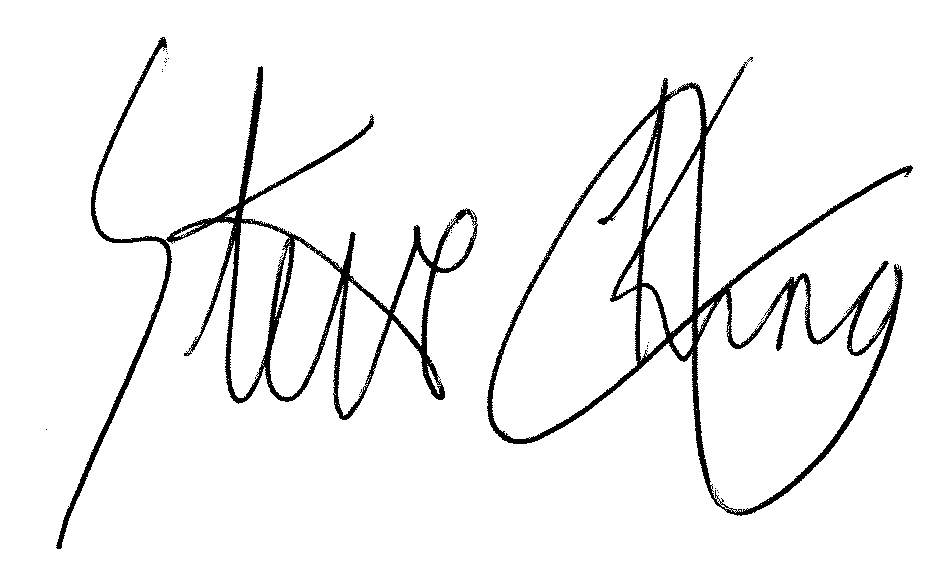 Steve Chang